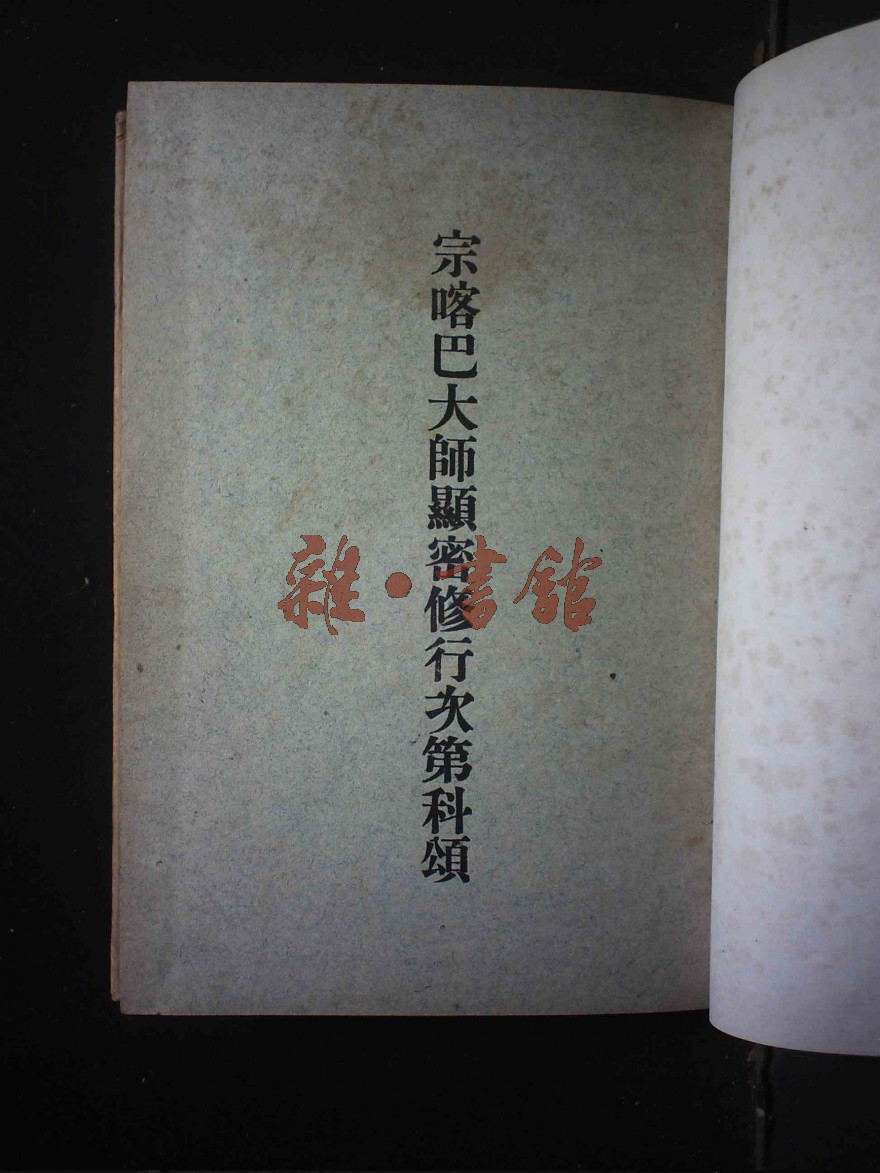 宗喀巴大師顯密修行次第科頌
雜·書館